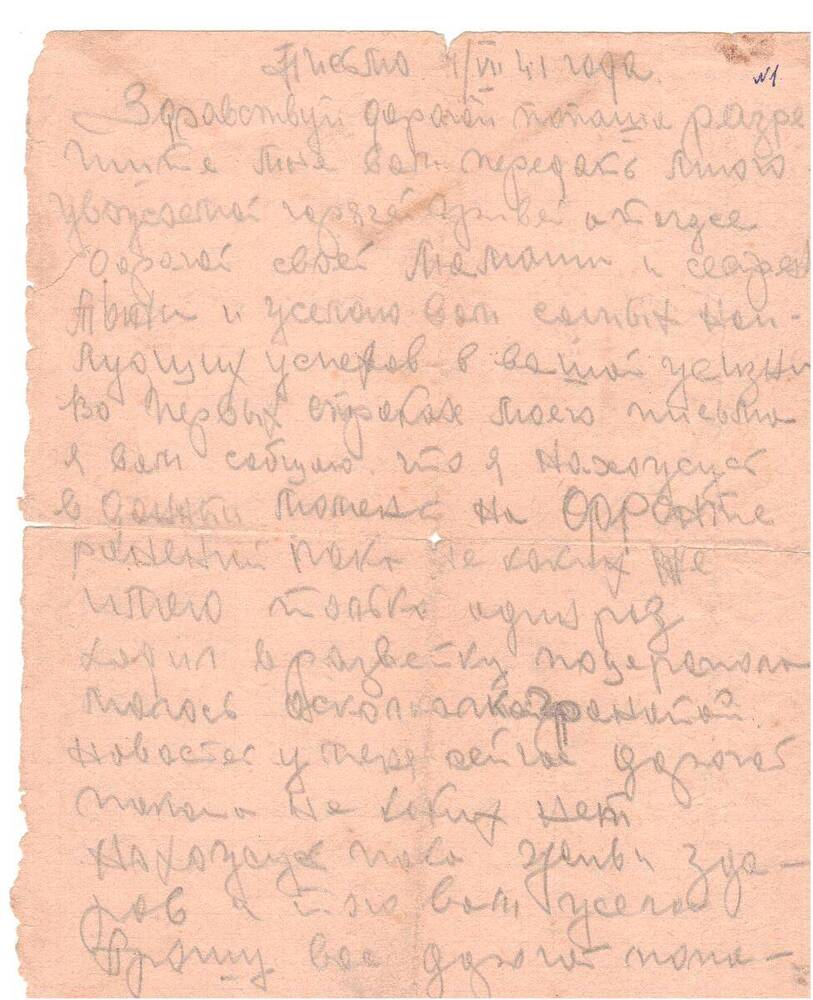 Письмо 1/VII 41 года. №1
Здравствуй дорогой попаша разре
шите мне вам передать много
уважаемой горячей привет а также
дорогой своей мамаши и сестре
и желаю вам самых наи-
лучших успехов в вашей жизни
Во первых строках моего письма
я вам собщаю что я нахожусь
в данный момент на фронте
ранений пока не каких не
имею только один раз
ходил в разветку поцерапало
малось осколкам гранатой
новостей у меня сейчас дорогой
папаша не каких нет
нахожусь пока жив и здо-
ров и того вам желаю
Прошу вас дорогой попа-